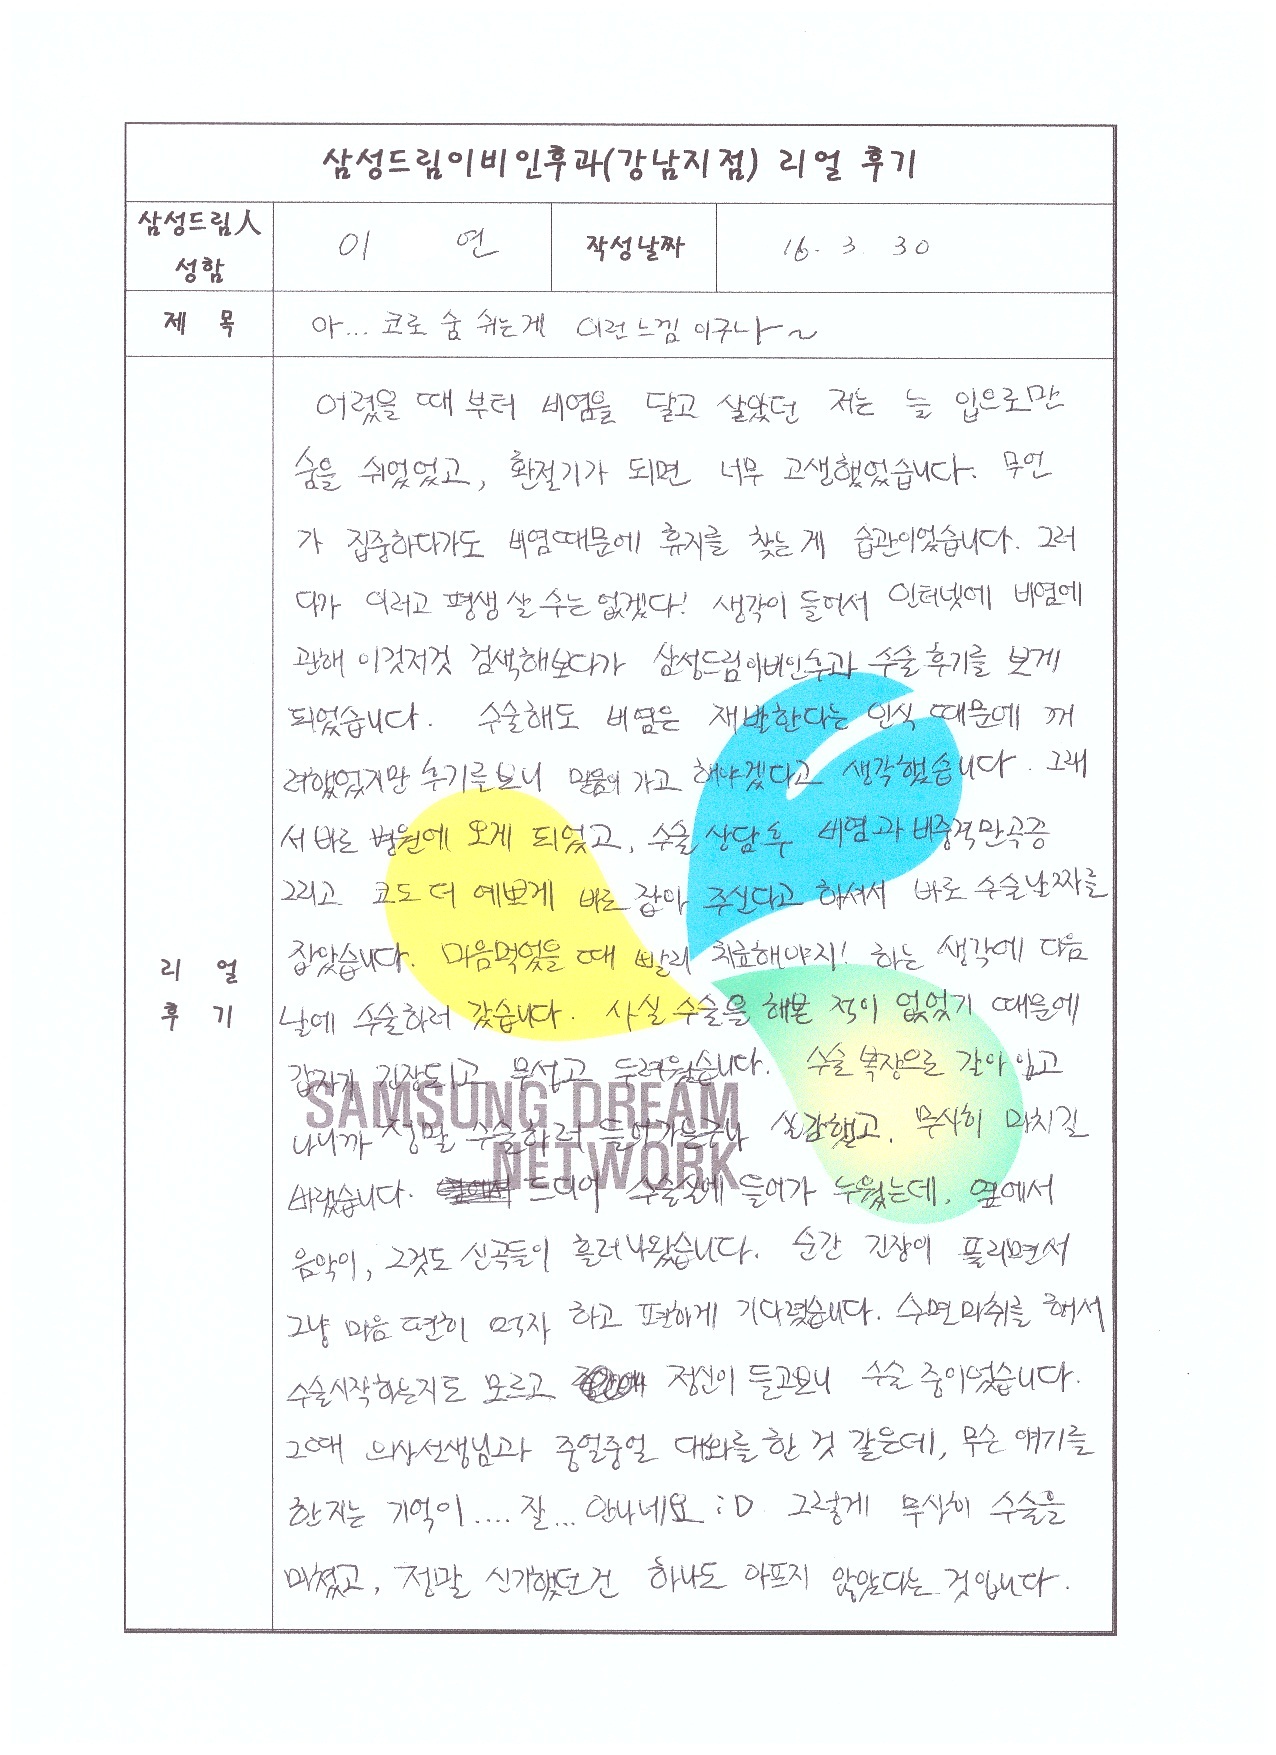 삼성드림이비인후과(강남지점) 리얼 후기
삼성드림人 성함
이 연
작성날짜
16. 3. 30
제 목
아... 코로 숨 쉬는게 이런느낌 이구나~
리 얼 후 기
어렸을 때 부터 비염을 달고 살았던 저는 늘 입으로만
숨을 쉬었었고, 환절기가 되면 너무 고생했었습니다. 무언
가 집중하다가도 비염때문에 휴지를 찾는게 습관이었습니다. 그러
다가 이러고 평생 살 수는 없겠다! 생각이 들어서 인터넷에 비염에
관해 이것저것 검색해보다가 삼성드림이비인후과 수술후기를 보게
되었습니다. 수술해도 비염은 재발한다는 인식 때문에 꺼
려했었지만 후기를보니 믿음이 가고 해야겠다고 생각했습니다. 그래
서 바로 병원에 오게 되었고, 수술 상담 후 비염과 비중격만곡증
그리고 코도 더 예쁘게 바로 잡아 주신다고 하셔서 바로 수술날짜를
잡았습니다. 마음먹었을 때 빨리 치료해야지! 하는 생각에 다음
날에 수술하러 갔습니다. 사실 수술을 해본 적이 없었기 때문에
갑자기 긴장되고 무섭고 두려웠습니다. 수술 복장으로 갈아입고
나니까 정말 수술하러 들어가는구나 실감했고, 무사히 마치길
바랬습니다. 드디어 수술실에 들어가 누웠는데, 옆에서
음악이, 그것도 신곡들이 흘러나왔습니다. 순간 긴장이 풀리면서
그냥 마음 편히 먹자 하고 편하게 기다렸습니다. 수면마취를 해서
수술시작하는지도 모르고 정신이 들고보니 수술 중이었습니다.
그때 의사선생님과 중얼중얼 대화를 한 것 같은데, 무슨 얘기를
한지는 기억이.... 잘... 안나네요 :D 그렇게 무사히 수술을
마쳤고, 정말 신기했던건 하나도 아프지 않았다는 것입니다.
SAMSUNG DREAM
NETWORK